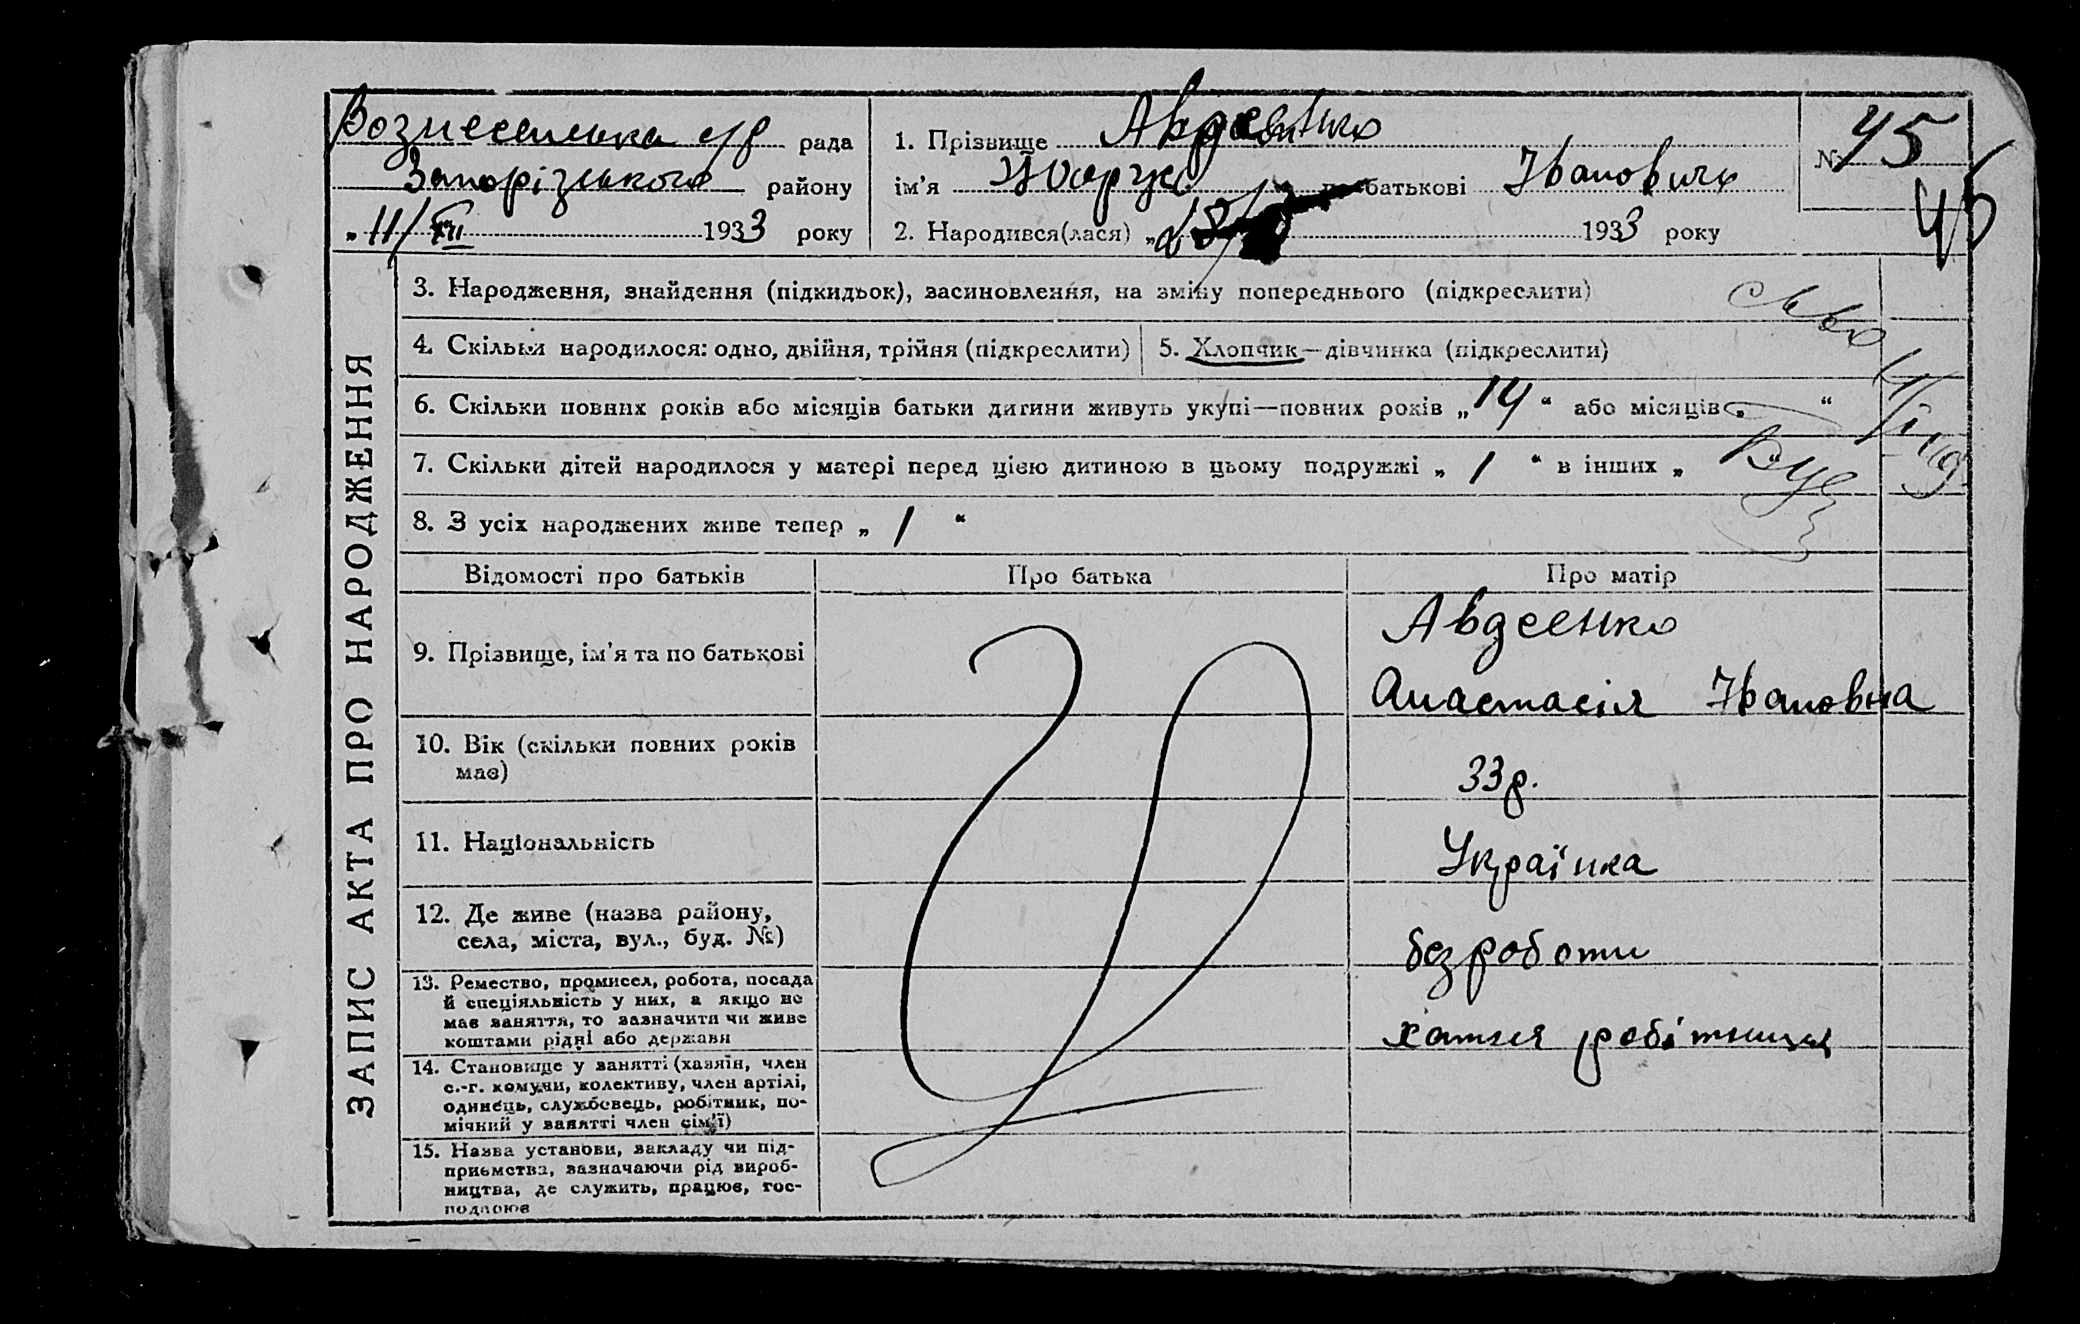 Вознесенська с/р рада
Запорізького району
„ 11/XII 1933 року
1. Прізвище Авдеенко
ім'я по батькові Іванович
2. Народився(лася) „ 1933 року
№ 45
45
ЗАПИС АКТА ПРО НАРОДЖЕННЯ
3. Народження, знайдення (підкидьок), засиновлення, на зміну попереднього (підкреслити)
4. Скільки народилося: одно, двійня, трійня (підкреслити)
5. Хлопчик—дівчинка (підкреслити)
6. Скільки повних років або місяців батьки дитини живуть укупі—повних років „ 14 “ або місяців „ “
7. Скільки дітей народилося у матері перед цією дитиною в цьому подружжі „ 1 “ в інших „
8. З усіх народжених живе тепер „ 1 “
Відомості про батьків
Про батька
Про матір
9. Прізвище, ім'я та по батькові
Авдеенко
Анастасія Івановна
10. Вік (скільки повних років
має)
33р.
11. Національність
Українка
12. Де живе (назва району,
села, міста, вул., буд. №)
без роботи
13. Ремество, промисел, робота, посада
й спеціяльність у них, а якщо не
має заняття, то зазначити чи живе
коштами рідні або держави
хатня робітниця
14. Становище у занятті (хазяїн, член
с.-г. комуни, колективу, член артілі,
одинець, службовець, робітник, по-
мічний у занятті член сім'ї)
15. Назва установи, закладу чи під-
приємства, зазначаючи рід вироб-
ництва, де служить, працює, гос-
подарює